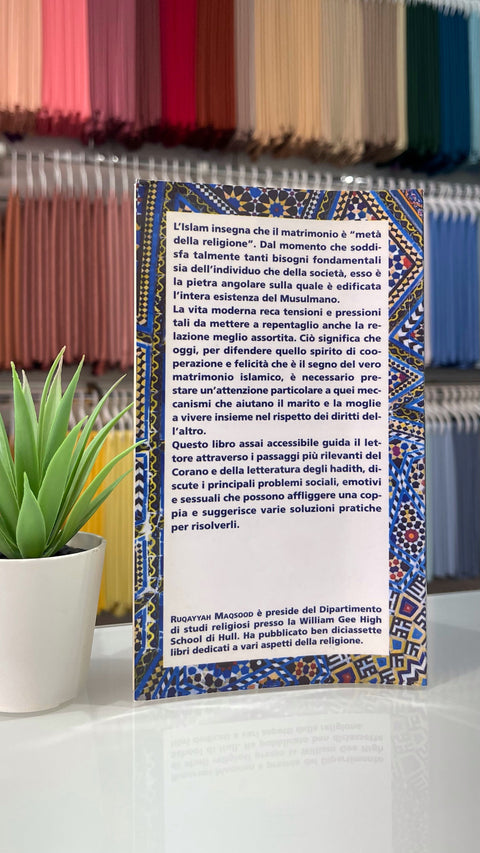 L'Islam insegna che il matrimonio è "metà
della religione". Dal momento che soddi-
sfa talmente tanti bisogni fondamentali
sia dell'individuo che della società, esso è
la pietra angolare sulla quale è edificata
l'intera esistenza del Musulmano.
La vita moderna reca tensioni e pressioni
tali da mettere a repentaglio anche la re-
lazione meglio assortita. Ciò significa che
oggi, per difendere quello spirito di coo-
perazione e felicità che è il segno del vero
matrimonio islamico, è necessario pre-
stare un'attenzione particolare a quei mec-
canismi che aiutano il marito e la moglie
a vivere insieme nel rispetto dei diritti del-
l'altro.
Questo libro assai accessibile guida il let-
tore attraverso i passaggi più rilevanti del
Corano e della letteratura degli hadith, di-
scute i principali problemi sociali, emotivi
e sessuali che possono affliggere una cop-
pia e suggerisce varie soluzioni pratiche
per risolverli.
RUQAYYAH MAQSOOD è preside del Dipartimento
di studi religiosi presso la William Gee High
School di Hull. Ha pubblicato ben diciassette
libri dedicati a vari aspetti della religione.